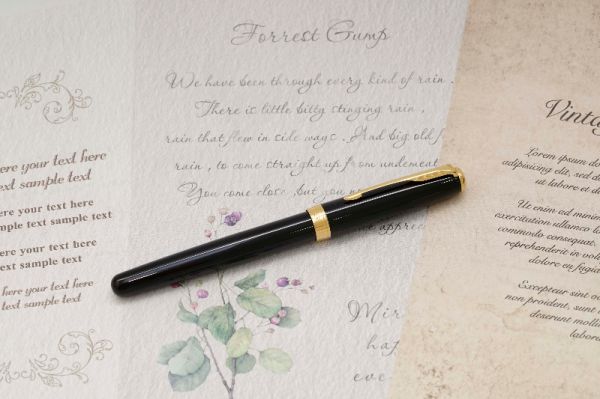 here your text here
text sample text
here your text here
text sample text
here your text here
text sample text
here your text here
sample text
Forrest Gump
We have been through every kind of rain .
There is little bitty stinging rain ,
rain that flew in side ways . And big old f
rain , to come straight up from underneat
You come close , but you
apprec
Mir
hap
eve
Vintag
Lorem ipsum do
adipisicing elit, sed d
ut labore et d
Ut enim ad minim
exercitation ullamco
commodo consequat.
reprehenderit in volu
dolore eu fugia
Excepteur sint oc
non proident, sunt i
deserunt mollit
labor